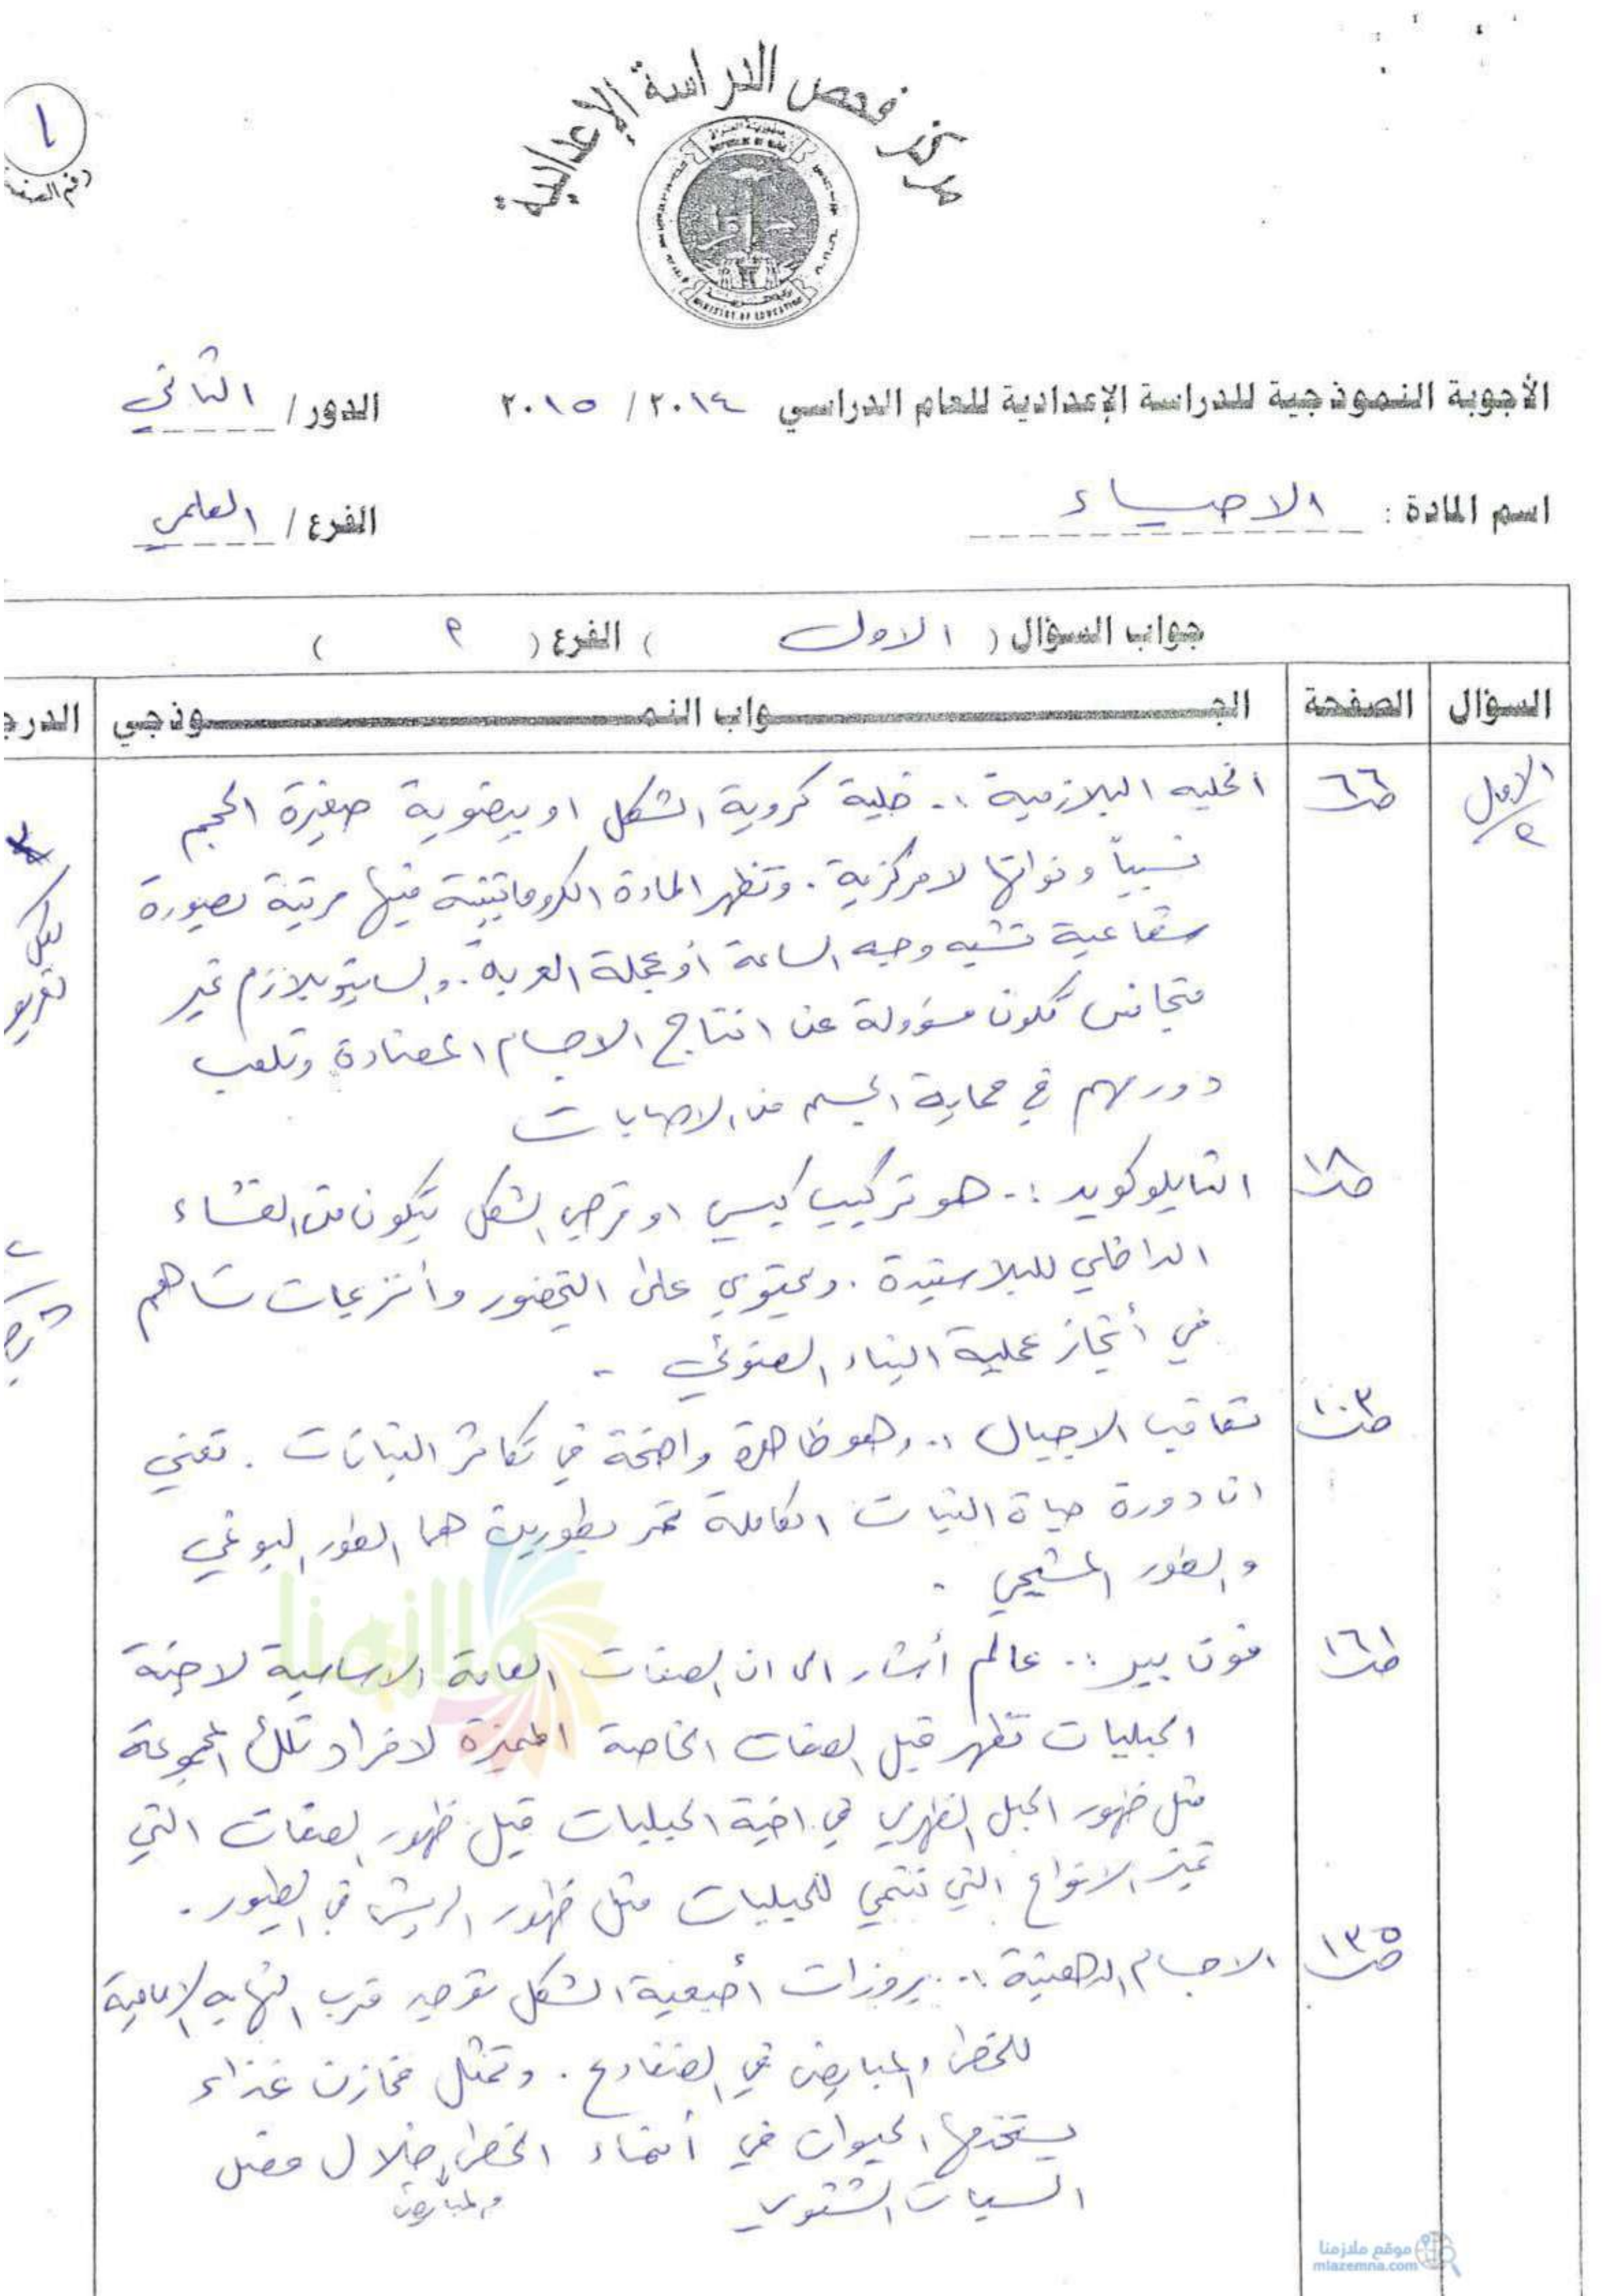 مركز فحص الدراسة الإعدادية
١
رقم الصفحة
REPUBLIC OF IRAQ
MINISTRY OF EDUCATION
الأجوبة النموذجية للدراسة الإعدادية للعام الدراسي ٢٠١٤ / ٢٠١٥ الدور / الثاني
اسم المادة : الاحياء الفرع / العلمي
جواب السؤال ( الاول ) الفرع ( ٩ )
السؤال الصفحة الجواب النموذجي الدرجة
الاول ص٦٦ الخليه البلازمية :- خلية كروية الشكل او بيضوية صغيرة الحجم
نسبياً ونواتها لامركزية . وتظهر المادة الكروماتينية فيها مرتبة بصورة
شعاعية تشبه وجه الساعة أو عجلة العربه . والسايتوبلازم غير
متجانس تكون مسؤولة عن انتاج الاجسام المضادة وتلعب
دور مهم في حماية الجسم من الاصابات
لكل
ص١٨ الثايلوكويد :- هو تركيب كيسي او قرصي الشكل يتكون من الغشاء
الداخلي للبلاستيدة . ويحتوي على اليخضور وأنزيمات تساهم
في أنجاز عملية البناء الضوئي -
ص١٠٣ تعاقب الاجيال :- وهو ظاهرة واضحة في تكاثر النباتات . تعني
ان دورة حياة النبات الكاملة تمر بطورين هما الطور البوغي
والطور المشيجي .
ص١٦١ فون بير :- عالم أشار الى ان الصفات العامة الاساسية لاجنة
الحبليات تظهر قبل الصفات الخاصة المميزة لافراد تلك المجموعة
مثل ظهور الحبل الظهري في اجنة الحبليات قبل ظهور الصفات التي
تميز الانواع التي تنتمي للحبليات مثل ظهور الريش في الطيور .
ص١٣٥ الاجسام الدهنية :- بروزات أصبعية الشكل توجد قرب النهايه الامامية
للخصى والمبايض في الضفادع . وتمثل مخازن غذاء
يستخدمها الحيوان في أنماء الخصى والمبايض خلال فصل
السبات الشتوي
ملازمنا
موقع ملازمنا
mlazemna.com